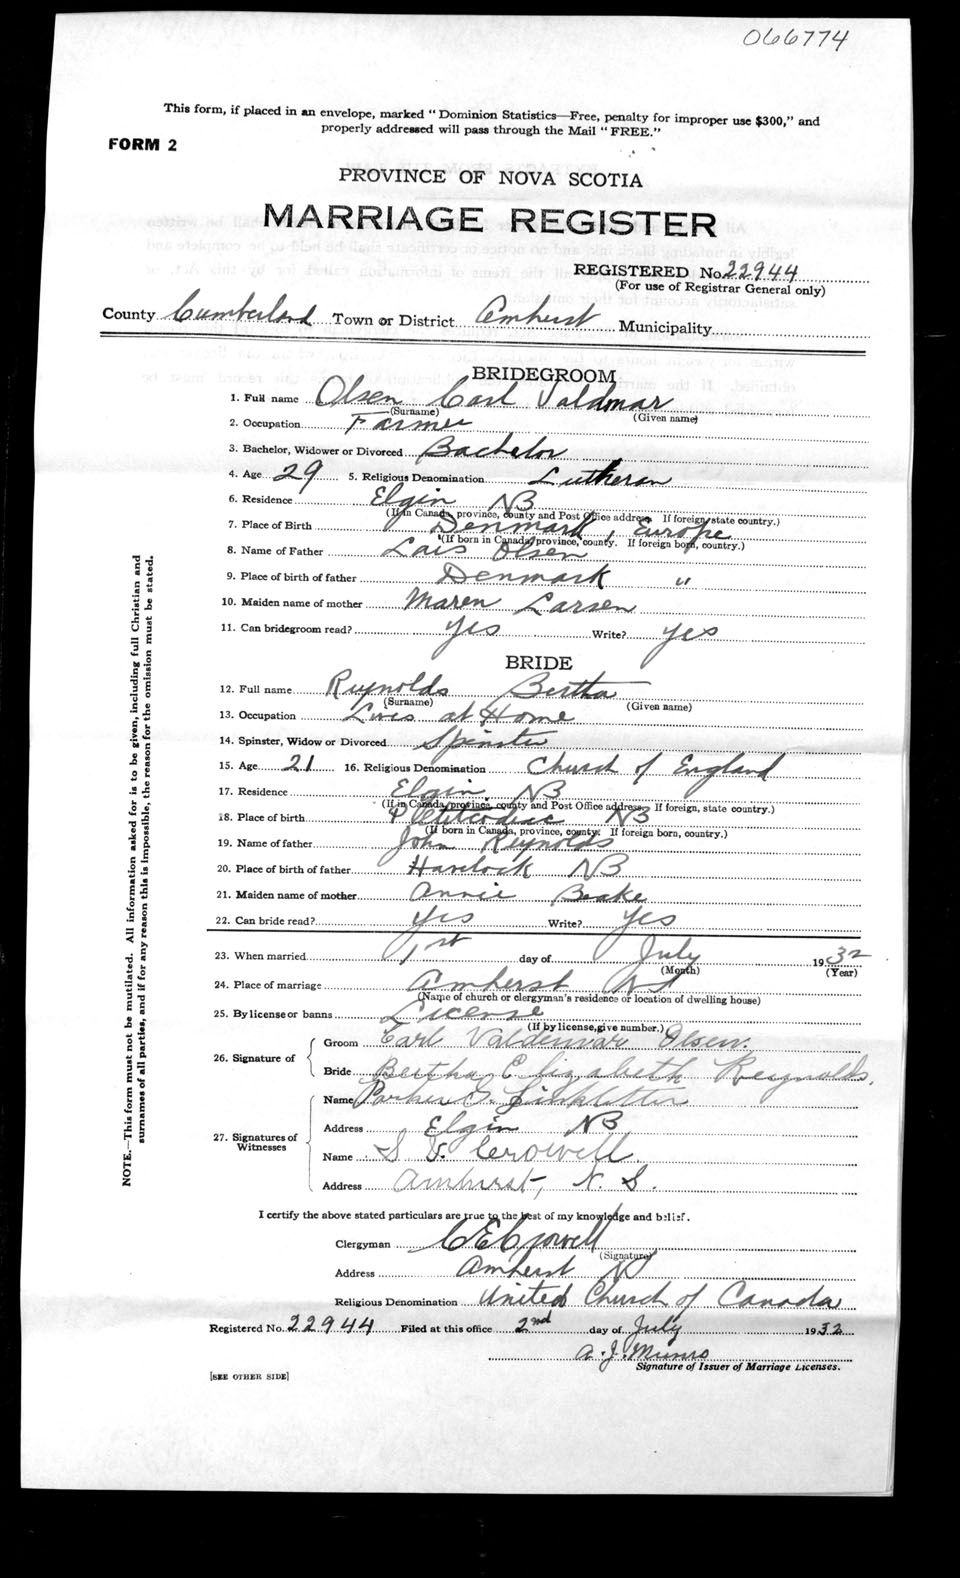 066774
This form, if placed in an envelope, marked "Dominion Statistics—Free, penalty for improper use $300," and
properly addressed will pass through the Mail "FREE."
FORM 2
PROVINCE OF NOVA SCOTIA
MARRIAGE REGISTER
REGISTERED No. 22944
(For use of Registrar General only)
County Cumberland Town or District Amherst Municipality
BRIDEGROOM
1. Full name Olsen Carl Valdmar
(Surname) (Given name)
2. Occupation Farmer
3. Bachelor, Widower or Divorced Bachelor
4. Age 29 5. Religious Denomination Lutheran
6. Residence Elgin NB
(If in Canada, province, county and Post Office address. If foreign, state country.)
7. Place of Birth Denmark, Europe
(If born in Canada, province, county. If foreign born, country.)
8. Name of Father Lais Olsen
9. Place of birth of father Denmark "
10. Maiden name of mother Maren Larsen
11. Can bridegroom read? yes Write? yes
BRIDE
12. Full name Reynolds Bertha
(Surname) (Given name)
13. Occupation Lives at Home
14. Spinster, Widow or Divorced Spinster
15. Age 21 16. Religious Denomination Church of England
17. Residence Elgin NB
(If in Canada, province, county and Post Office address. If foreign, state country.)
18. Place of birth Petitcodiac NB
(If born in Canada, province, county. If foreign born, country.)
19. Name of father John Reynolds
20. Place of birth of father Havelock NB
21. Maiden name of mother Annie Beake
22. Can bride read? Yes Write? Yes
23. When married 1st day of July 1932
(Month) (Year)
24. Place of marriage Amherst NS
(Name of church or clergyman's residence or location of dwelling house)
25. By license or banns License
(If by license, give number.)
26. Signature of
Groom Carl Valdemar Olsen.
Bride Bertha Elizabeth Reynolds.
27. Signatures of Witnesses
Name Parker G. Linkletter
Address Elgin NB
Name S V. Crowell
Address Amherst, N. S.
I certify the above stated particulars are true to the best of my knowledge and belief.
Clergyman C E Crowell
(Signature)
Address Amherst NS
Religious Denomination United Church of Canada
Registered No. 22944 Filed at this office 2nd day of July 1932
A. J. Munro
Signature of Issuer of Marriage Licenses.
[SEE OTHER SIDE]
NOTE.—This form must not be mutilated. All information asked for is to be given, including full Christian and
surnames of all parties, and if for any reason this is impossible, the reason for the omission must be stated.